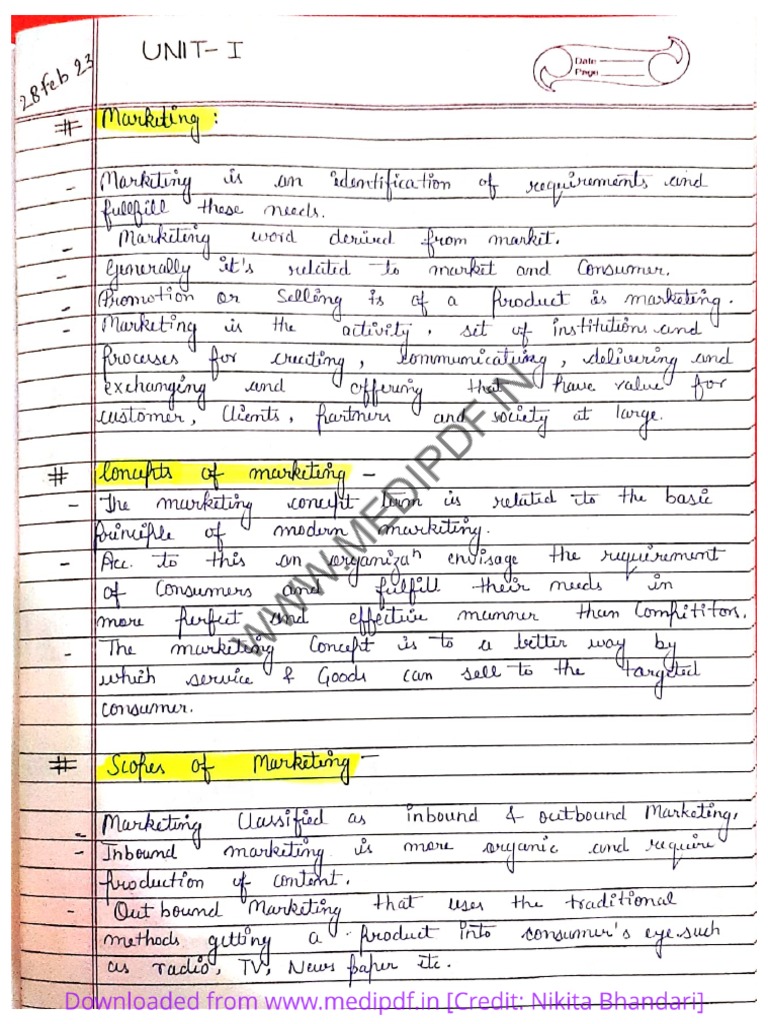 28 Feb 23
UNIT-I
Date
Page
# Marketing :
- Marketing is an identification of requirements and
fullfill these needs.
- Marketing word derived from market.
- Generally it's related to market and Consumer.
- Promotion or Selling is of a product is marketing.
- Marketing is the activity, set of institutions and
processes for creating, communicating, delivering and
exchanging and offering that have value for
customer, Clients, partners and society at large.
# Concepts of marketing -
- The marketing concept term is related to the basic
principle of modern marketing.
- Acc. to this an organizaⁿ envisage the requirement
of Consumers and fulfill their needs in
more perfect and effective manner than Compititors.
- The marketing Concept is to a better way by
which service & Goods can sell to the targeted
consumer.
# Scopes of Marketing -
- Marketing Classified as inbound & outbound Marketing.
- Inbound marketing is more organic and require
production of content.
- Out bound Marketing that uses the traditional
methods getting a product into consumer's eye such
as radio, TV, News paper etc.
WWW.MEDIPDF.IN
Downloaded from www.medipdf.in [Credit: Nikita Bhandari]